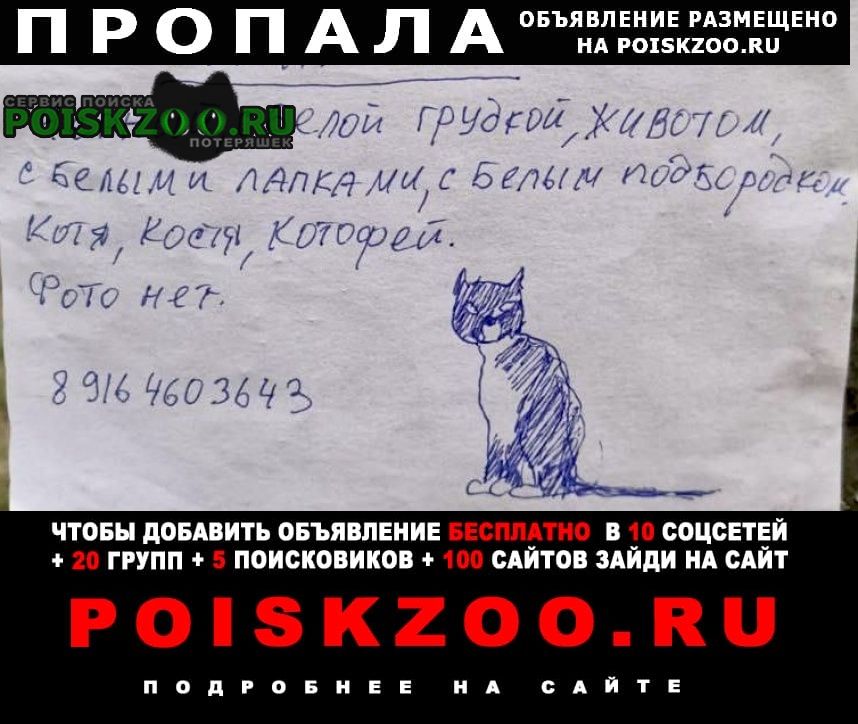 ПРОПАЛА
ОБЪЯВЛЕНИЕ РАЗМЕЩЕНО
НА POISKZOO.RU
СЕРВИС ПОИСКА
POISKZOO.RU
ПОТЕРЯШЕК
елой грудкой, животом,
с белыми лапками, с белым подбородком.
Котя, Костя, Котофей.
Фото нет.
8 916 4603643
ЧТОБЫ ДОБАВИТЬ ОБЪЯВЛЕНИЕ БЕСПЛАТНО В 10 СОЦСЕТЕЙ
+ 20 ГРУПП + 5 ПОИСКОВИКОВ + 100 САЙТОВ ЗАЙДИ НА САЙТ
POISKZOO.RU
ПОДРОБНЕЕ НА САЙТЕ